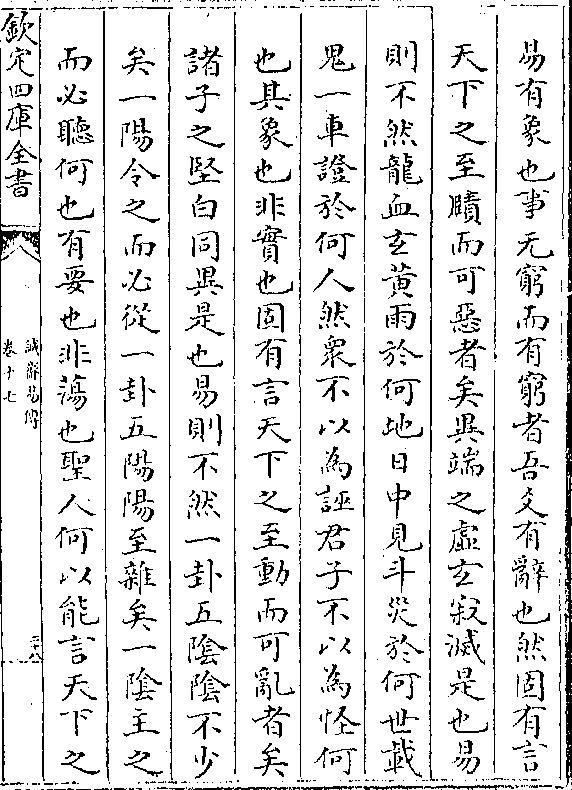 易有象也事无窮而有窮者吾爻有辭也然固有言
天下之至賾而可惡者矣異端之虛玄寂滅是也易
則不然龍血玄黃雨於何地日中見斗災於何世載
鬼一車證於何人然衆不以為誣君子不以為怪何
也其象也非實也固有言天下之至動而可亂者矣
諸子之堅白同異是也易則不然一卦五陰陰不少
矣一陽令之而必從一卦五陽陽至雜矣一陰主之
而必聽何也有要也非蕩也聖人何以能言天下之
欽定四庫全書
誠齋易傳
卷十七
二十八